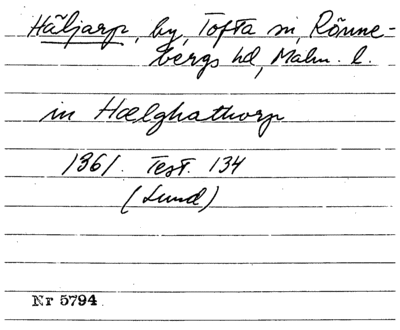 Häljarp, by, Tofta sn, Rönne-
bergs hd, Malm. l.
in Hælghathorp
1361. Test. 134
(Lund)
Nr 5794